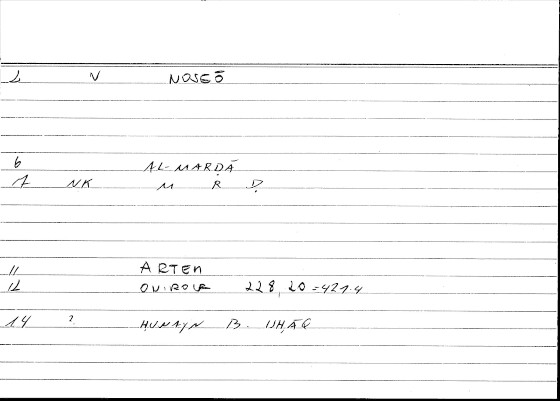 2 V NOSEŌ
6 AL-MARḌĀ
7 NK M R Ḍ
11 ARTEN
12 228, 20 = 421.4
14 ? ḤUNAYN B. ISḤĀQ